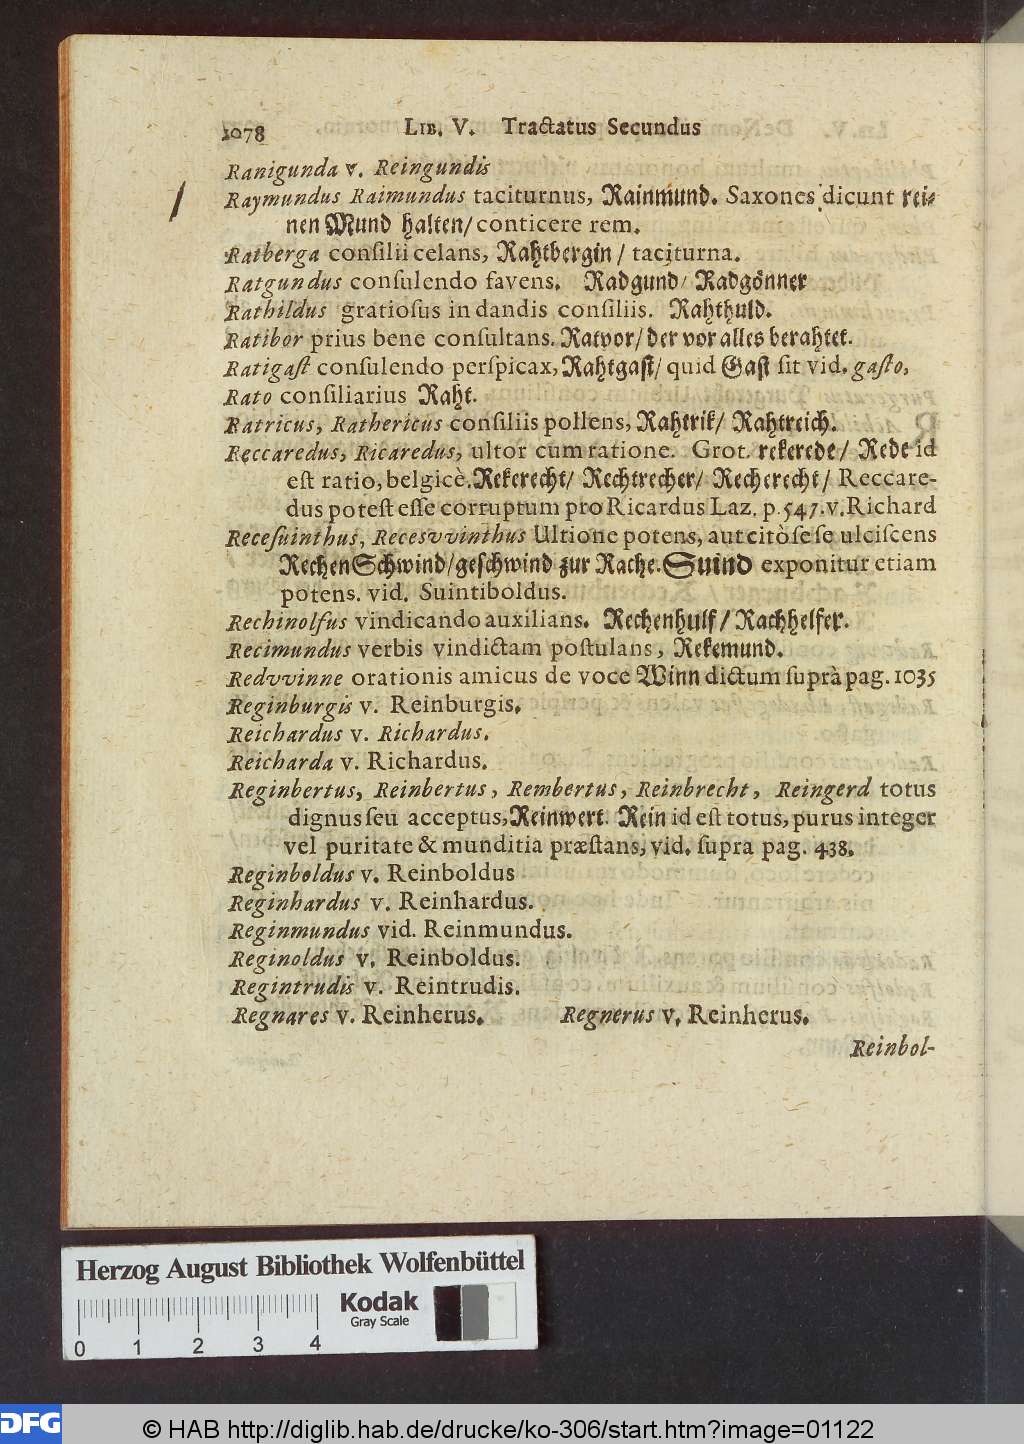 1078 LIB. V. Tractatus Secundus
Ranigunda v. Reingundis
Raymundus Raimundus taciturnus, Rainmund. Saxones dicunt rei-
nen Mund halten/ conticere rem.
Ratberga consilii celans, Rahtbergin / taciturna.
Ratgundus consulendo favens. Radgund/ Radgönner
Rathildus gratiosus in dandis consiliis. Rahthuld.
Ratibor prius bene consultans. Ratvor/ der vor alles berahtet.
Ratigast consulendo perspicax, Rahtgast/ quid Gast sit vid. gasto,
Rato consiliarius Raht.
Ratricus, Rathericus consiliis pollens, Rahtrik/ Rahtreich.
Reccaredus, Ricaredus, ultor cum ratione. Grot. rekerede/ Rede id
est ratio, belgicè. Rekerecht/ Rechtrecher/ Recherecht/ Reccare-
dus potest esse corruptum pro Ricardus Laz. p. 547. v. Richard
Recesuinthus, Recesvvinthus Ultione potens, aut citò se se ulciscens
Rechen Schwind/ geschwind zur Rache. Suind exponitur etiam
potens. vid. Suintiboldus.
Rechinolfus vindicando auxilians. Rechenhulf/ Rachhelfer.
Recimundus verbis vindictam postulans, Rekemund.
Redvvinne orationis amicus de voce Winn dictum suprà pag. 1035
Reginburgis v. Reinburgis.
Reichardus v. Richardus.
Reicharda v. Richardus.
Reginbertus, Reinbertus, Rembertus, Reinbrecht, Reingerd totus
dignus seu acceptus, Reinwert. Rein id est totus, purus integer
vel puritate & munditia præstans, vid. supra pag. 438.
Reginboldus v. Reinboldus
Reginhardus v. Reinhardus.
Reginmundus vid. Reinmundus.
Reginoldus v. Reinboldus.
Regintrudis v. Reintrudis.
Regnares v. Reinherus. Regnerus v. Reinherus.
Reinbol-
Herzog August Bibliothek Wolfenbüttel
Kodak
Gray Scale
0 1 2 3 4
DFG
© HAB http://diglib.hab.de/drucke/ko-306/start.htm?image=01122